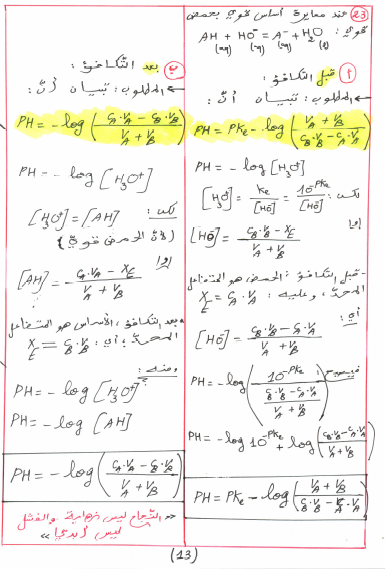 23) عند معايرة أساس قوي بحمض
قوي: AH + HO⁻ = A⁻ + H₂O
(aq) (aq) (aq) (l)
1) قبل التكافؤ:
← المطلوب: تبيان أنّ:
PH = PKe - log ( (VA + VB) / (CB·VB - CA·VA) )
PH = - log [H₃O⁺]
لكن: [H₃O⁺] = Ke / [HO⁻] = 10^-PKe / [HO⁻]
إذا [HO⁻] = (CB·VB - XE) / (VA + VB)
- قبل التكافؤ، الحمض هو المتفاعل
المحدّ، وعليه: XE = CA·VA
أي:
[HO⁻] = (CB·VB - CA·VA) / (VA + VB)
فيصبح: PH = - log ( 10^-PKe / ( (CB·VB - CA·VA) / (VA + VB) ) )
PH = - log 10^-PKe + log ( (CB·VB - CA·VA) / (VA + VB) )
PH = PKe - log ( (VA + VB) / (CB·VB - CA·VA) )
ب) بعد التكافؤ:
← المطلوب: تبيان أنّ:
PH = - log ( (CA·VA - CB·VB) / (VA + VB) )
PH = - log [H₃O⁺]
لكن:
[H₃O⁺] = [AH]
(لأن الحمض قوي)
إذا
[AH] = (CA·VA - XE) / (VA + VB)
* بعد التكافؤ، الأساس هو المتفاعل
المحدّ، أي: XE = CB·VB
ومنه:
PH = - log [H₃O⁺]
PH = - log [AH]
PH = - log ( (CA·VA - CB·VB) / (VA + VB) )
« النجاح ليس نهاية والفشل
ليس أبدي »
(13)